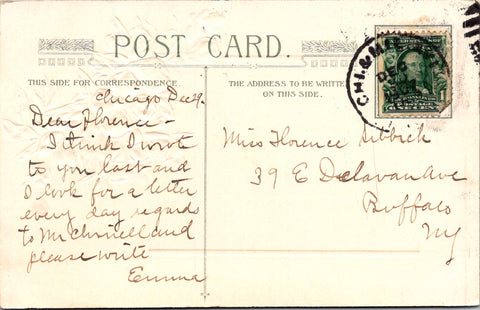 POST CARD.
THIS SIDE FOR CORRESPONDENCE.
THE ADDRESS TO BE WRITTEN
ON THIS SIDE.
Chicago Dec 29.
Dear Florence –
I think I wrote
to you last and
I look for a letter
every day regards
to Mr and
please write
Emma
Miss Florence Sibbick
39 E Delavan Ave
Buffalo
NY
CHI. &
DEC
POSTAGE
ONE CENT